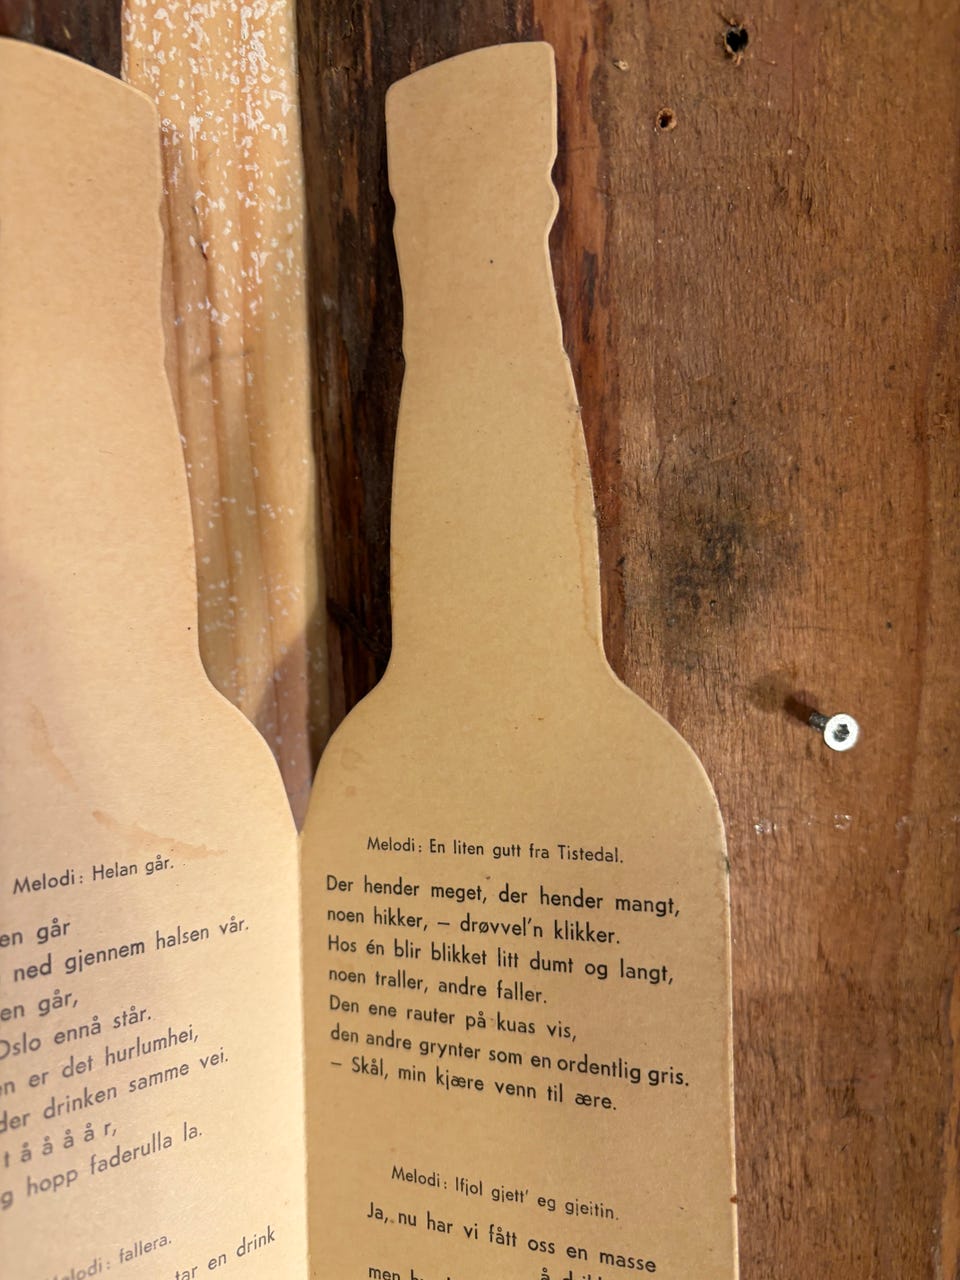 Melodi: Helan går.
går
ned gjennem halsen vår.
går,
Oslo ennå står.
er det hurlumhei,
drinken samme vei.
t å å å å r,
hopp faderulla la.
Melodi: fallera.
tar en drink
Melodi: En liten gutt fra Tistedal.
Der hender meget, der hender mangt,
noen hikker, – drøvvel'n klikker.
Hos én blir blikket litt dumt og langt,
noen traller, andre faller.
Den ene rauter på kuas vis,
den andre grynter som en ordentlig gris.
– Skål, min kjære venn til ære.
Melodi: Ifjol gjett' eg gjeitin.
Ja, nu har vi fått oss en masse
men